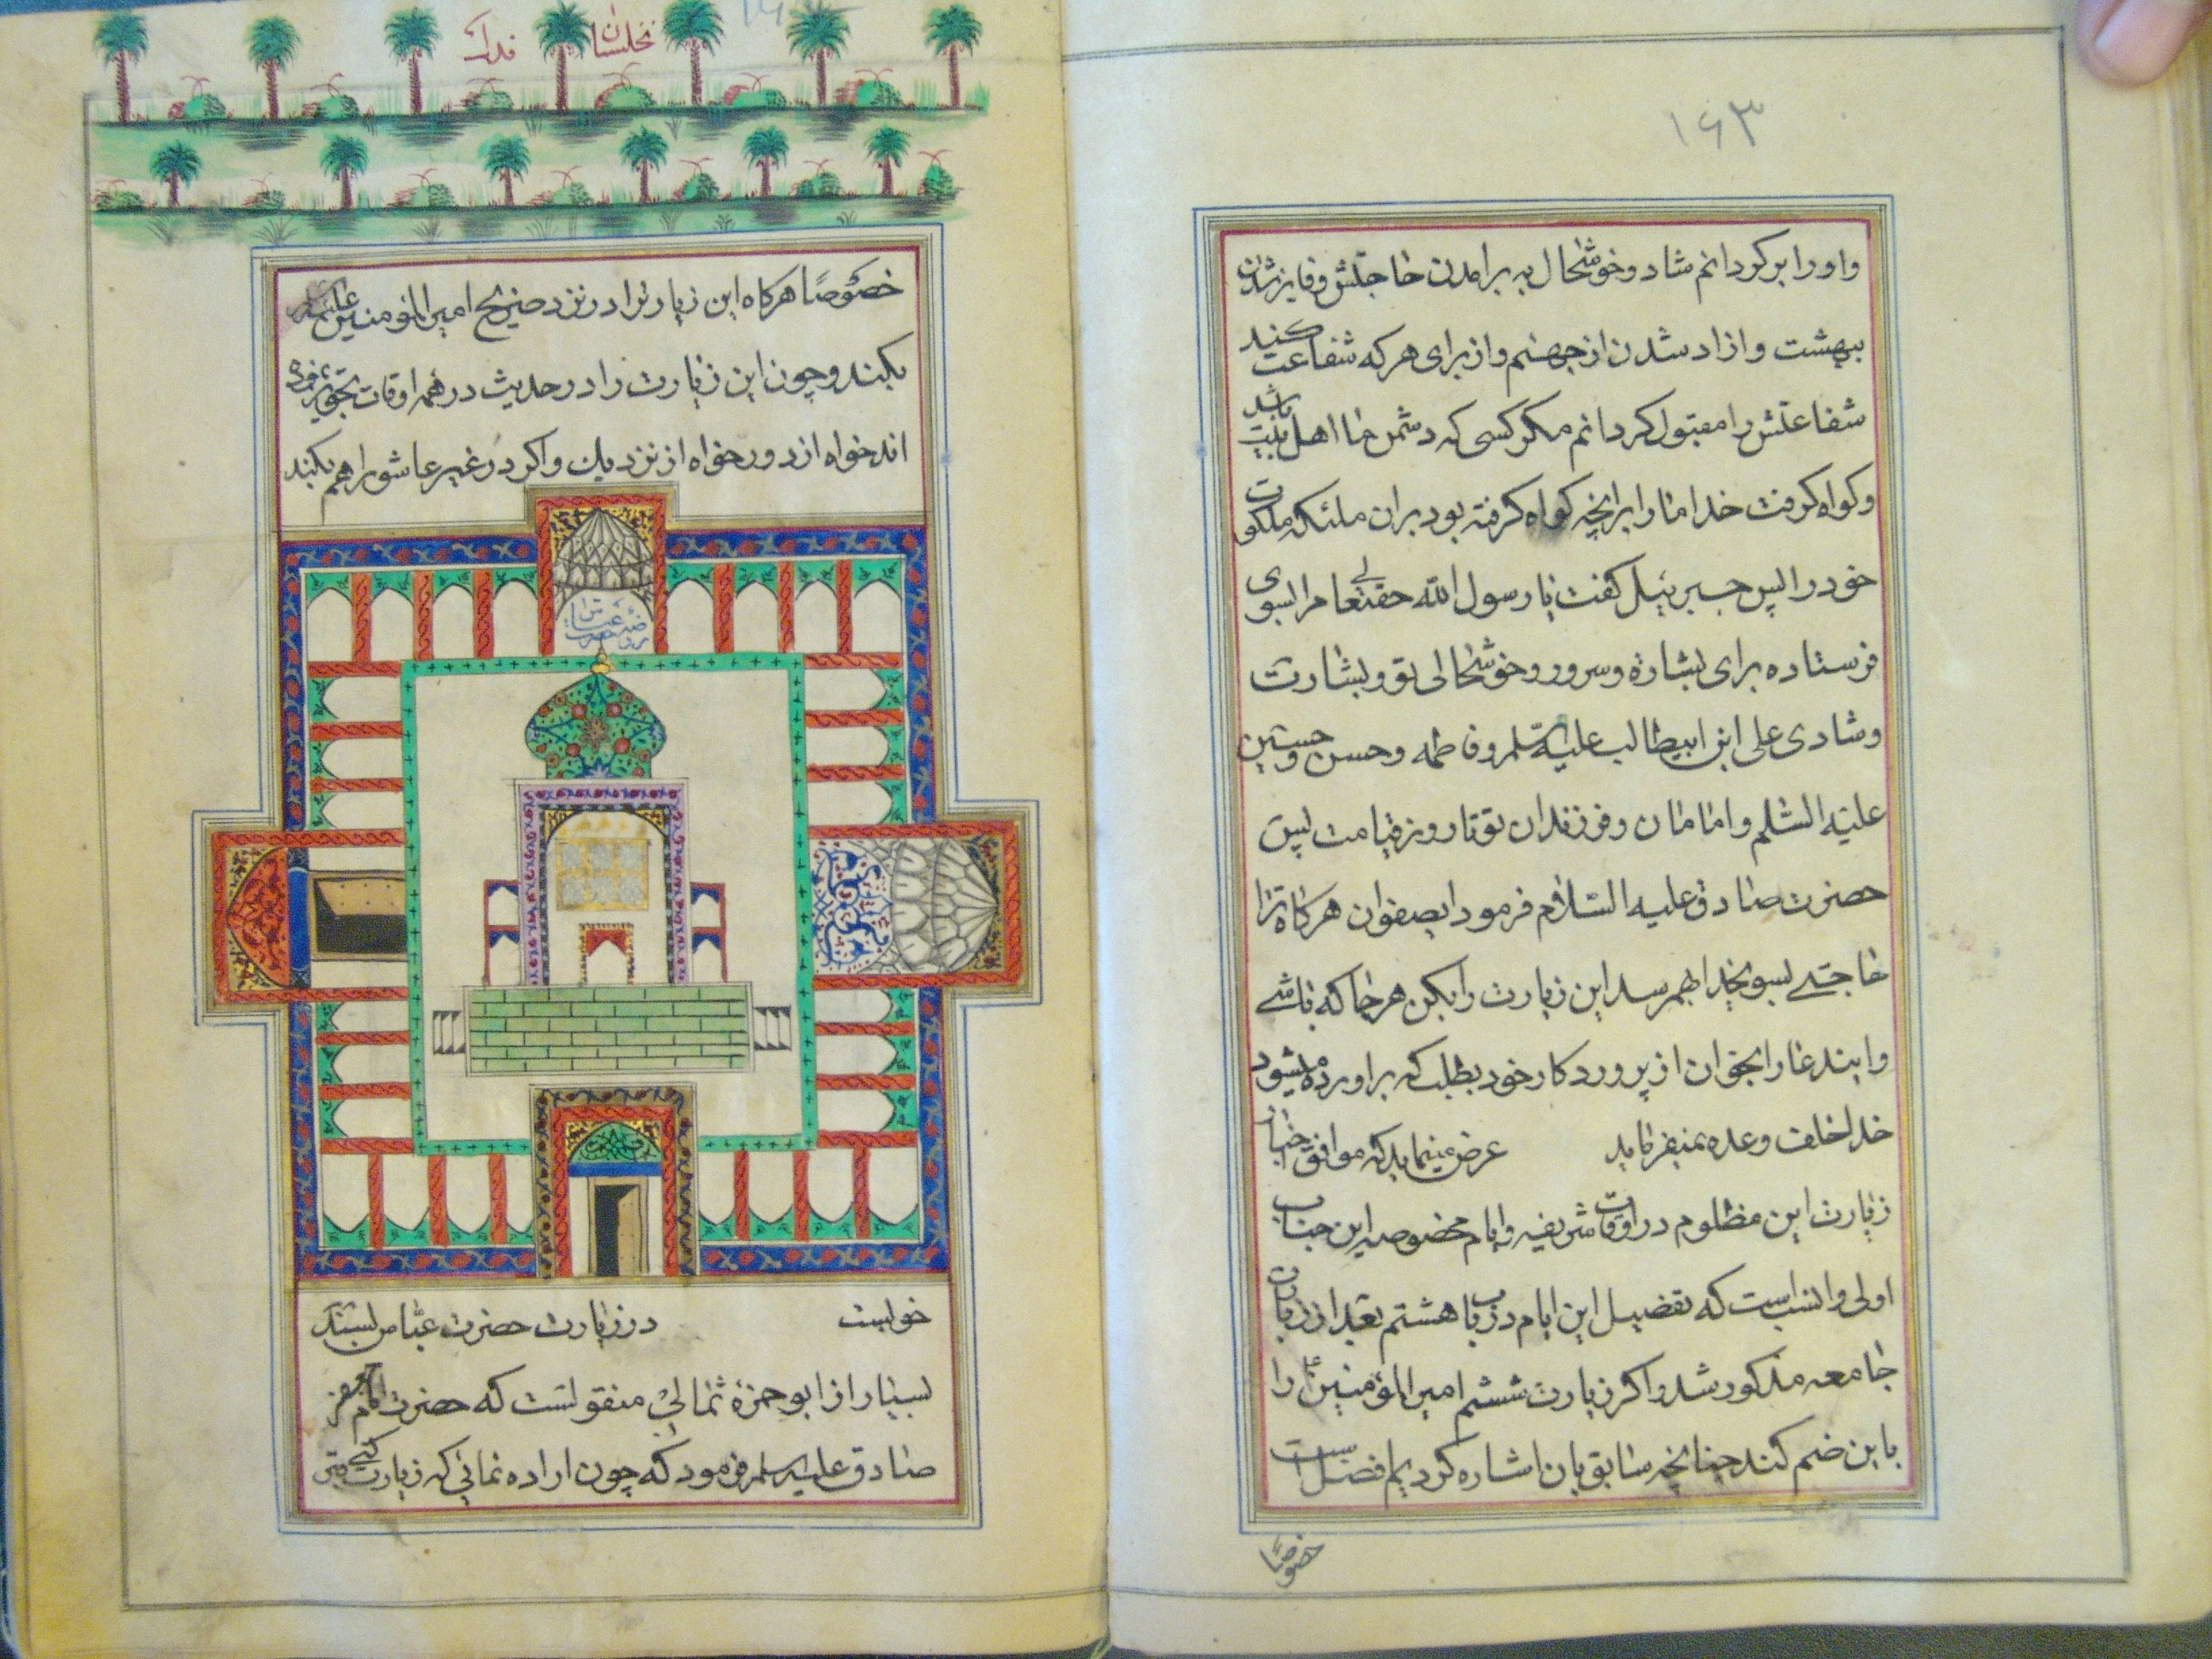 ۱۶۳
واورا برکردانم شاد وخوشحال به برامدن حاجتش وفایز شدن
ببهشت وازاد شدن ازجهنم واز برای هرکه شفاعت کند
شفاعتش را مقبول کردانم مکر کسی که دشمن ما اهل بیت باشد
وکواه کرفت خدا مارا برانچه کواه کرفته بود بران ملئکه ملکوت
خودرا پس جبرئیل کفت یا رسول الله حقتعالی مرا بسوی
فرستاده برای بشارة وسرور وخوشحالی تو وبشارت
وشادی علی ابن ابیطالب علیه السلم وفاطمه وحسن وحسین
علیه السلم وامامان وفرزندان تو تا روز قیامت پس
حضرت صادق علیه السلام فرمود ایصفوان هرکاه ترا
حاجتی بسوی خدا بهم رسد این زیارت را بکن هر جا که باشی
واین دعا را بخوان از پروردکار خود بطلب که براورده میشود
خدا خلف وعده نمیفرماید عرض مینماید که موافق
زیارت این مظلوم در اوقات شریفه وایام مخصوصه این جناب
اولی وانسب است که تفضیل این ایام در باب هشتم بعد از زیارت
جامعه مذکور شد واکر زیارت ششم امیرالمؤمنین را
باین ضم کند چنانچه سابق بان اشاره کردیم افضل است
خصوصًا
نخلستان فدک
خصوصًا هرکاه این زیارترا در نزد ضریح امیرالمؤمنین علیه السلم
بکند وچون این زیارت را در حدیث در همه اوقات تجویز فرموده
اند خواه از دور خواه از نزدیک واکر در غیر عاشورا هم بکند
روضه حضرت عباس
خوبست در زیارت حضرت عباس بسند
بسیار از ابوحمزة ثمالی منقولست که حضرت امام جعفر
صادق علیه السلم فرمود که چون اراده نمائی که زیارت کنی قبر